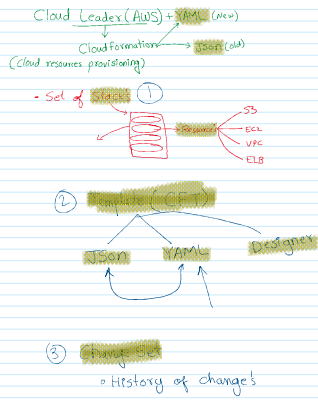 Cloud Leader (AWS) + YAML (New)
CloudFormation Json (old)
(Cloud resources provisioning)
• Set of Stacks ①
Resources
S3
EC2
VPC
ELB
② Template (CFT)
JSon YAML Designer
③ Change Set
◦ History of change's